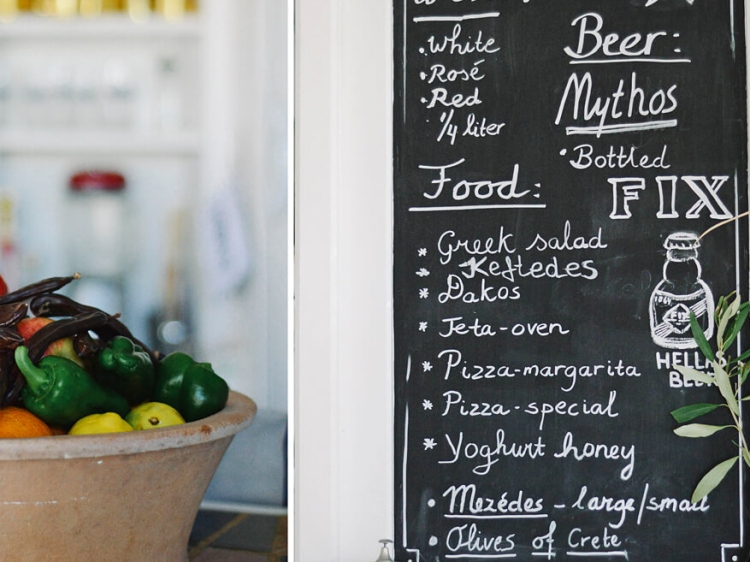 ·White
·Rosé
·Red
¼ liter
Beer:
Mythos
·Bottled
FIX
HELLAS
BEER
Food:
* Greek salad
* Keftedes
* Dakos
* Feta-oven
* Pizza-margarita
* Pizza-special
* Yoghurt honey
• Mezédes - large/small
• Olives of Crete